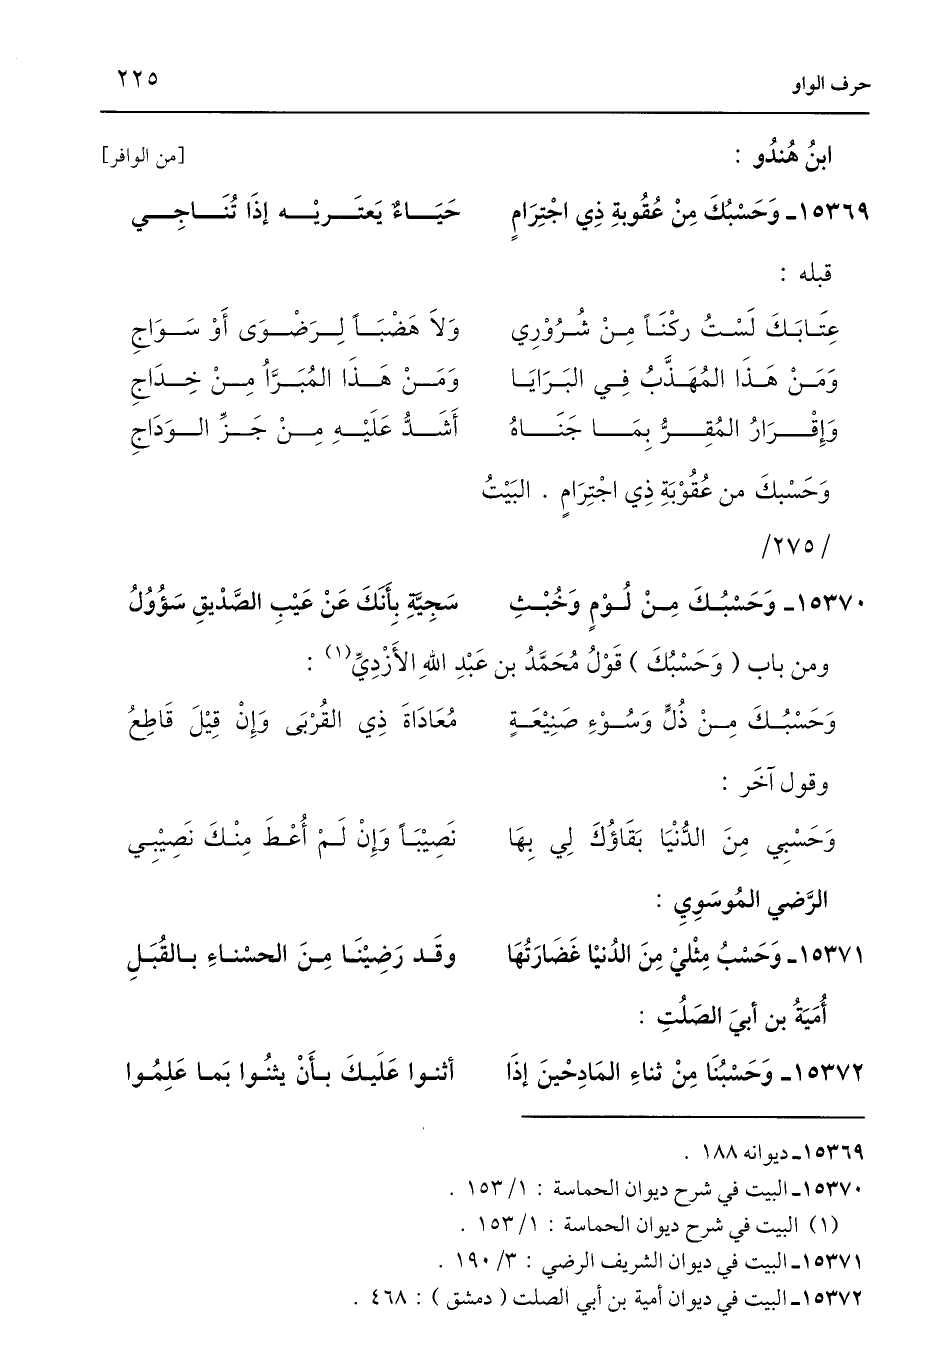 حرف الواو ٢٢٥
ابنُ هُندُو : [من الوافر]
١٥٣٦٩ـ وَحَسْبُكَ مِنْ عُقُوبةِ ذِي اجْتِرَامٍ حَيَـــاءٌ يَعتَـــرِيْـــه إذَا تُنَـــاجِـــي
قبله :
عِتَابَـكَ لَسْـتُ ركْنَـاً مِـنْ شُـرُوْرِي وَلاَ هَضْبَـــاً لِـــرَضْـــوَى أَوْ سَـــوَاجِ
وَمَـنْ هَـذَا المُهَـذَّبُ فِـي البَـرَايَـا وَمَـــنْ هَـــذَا المُبَـــرَّأُ مِـــنْ خِـــدَاجِ
وَإِقْـــرَارُ المُقِـــرُّ بِمَـــا جَنَـــاهُ أَشَـــدُّ عَلَيْـــهِ مِـــنْ جَـــزِّ الـــوَدَاجِ
وَحَسْبكَ من عُقُوْبَةِ ذِي اجْتِرَامٍ . البَيْتُ
/٢٧٥/
١٥٣٧٠ـ وَحَسْبُـكَ مِـنْ لُـومٍ وَخُبْـثِ سَجِيَّةِ بِأَنَكَ عَنْ عَيْبِ الصَّدْيقِ سَؤُوْلُ
ومن باب ( وَحَسْبُكَ ) قَوْلُ مُحَمَّدُ بن عَبْدِ اللهِ الأَزْدِيِّ(١) :
وَحَسْبُـكَ مِـنْ ذُلٍّ وَسُـوْءِ صَنِيْعَـةٍ مُعَادَاةَ ذِي القُرْبَى وَإِنْ قِيْلَ قَاطِعُ
وقول آخَر :
وَحَسْبِي مِنَ الدُّنْيَا بَقَاؤُكَ لِي بِهَا نَصِيْبَـاً وَإِنْ لَـمْ أُعْـطَ مِنْـكَ نَصِيْبِـي
الرَّضي المُوسَوِي :
١٥٣٧١ـ وَحَسْبُ مِثْلِيْ مِنَ الدُنْيَا غَضَارَتُهَا وقَـد رَضِيْنَـا مِـنَ الحسْنـاءِ بـالقُبَـلِ
أُمَيَةُ بن أبيَ الصَلُتِ :
١٥٣٧٢ـ وَحَسْبُنَا مِنْ ثناءِ المَادِحْينَ إذَا أثنـوا عَلَيـكَ بـأَنْ يثنُـوا بَمـا عَلِمُـوا
١٥٣٦٩ـ ديوانه ١٨٨ .
١٥٣٧٠ـ البيت في شرح ديوان الحماسة : ١/ ١٥٣ .
(١) البيت في شرح ديوان الحماسة : ١/ ١٥٣ .
١٥٣٧١ـ البيت في ديوان الشريف الرضي : ٣/ ١٩٠ .
١٥٣٧٢ـ البيت في ديوان أمية بن أبي الصلت ( دمشق ) : ٤٦٨ .